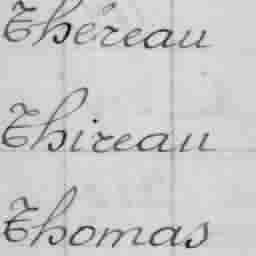 Théreau
Thireau
Thomas